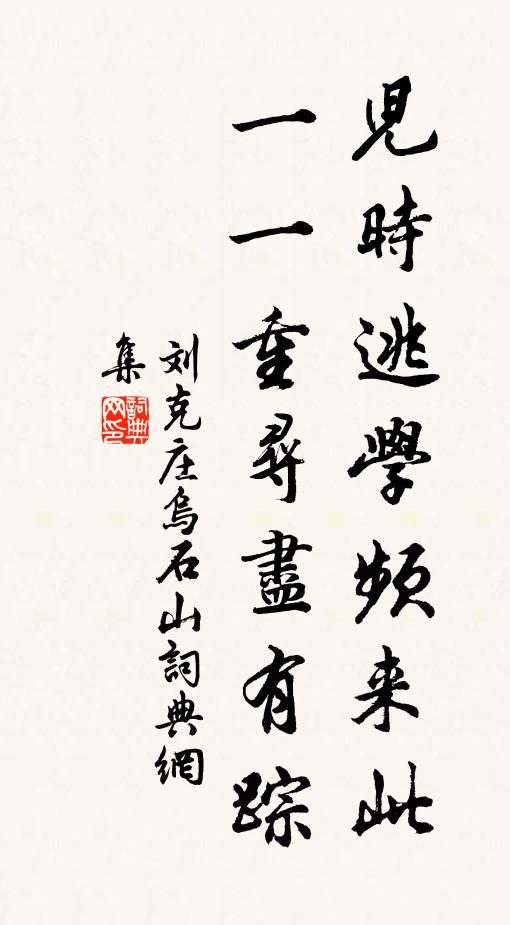 兒時逃學頻来此
一一重尋盡有踪
刘克庄烏石山詞典網
集
詞典
网印